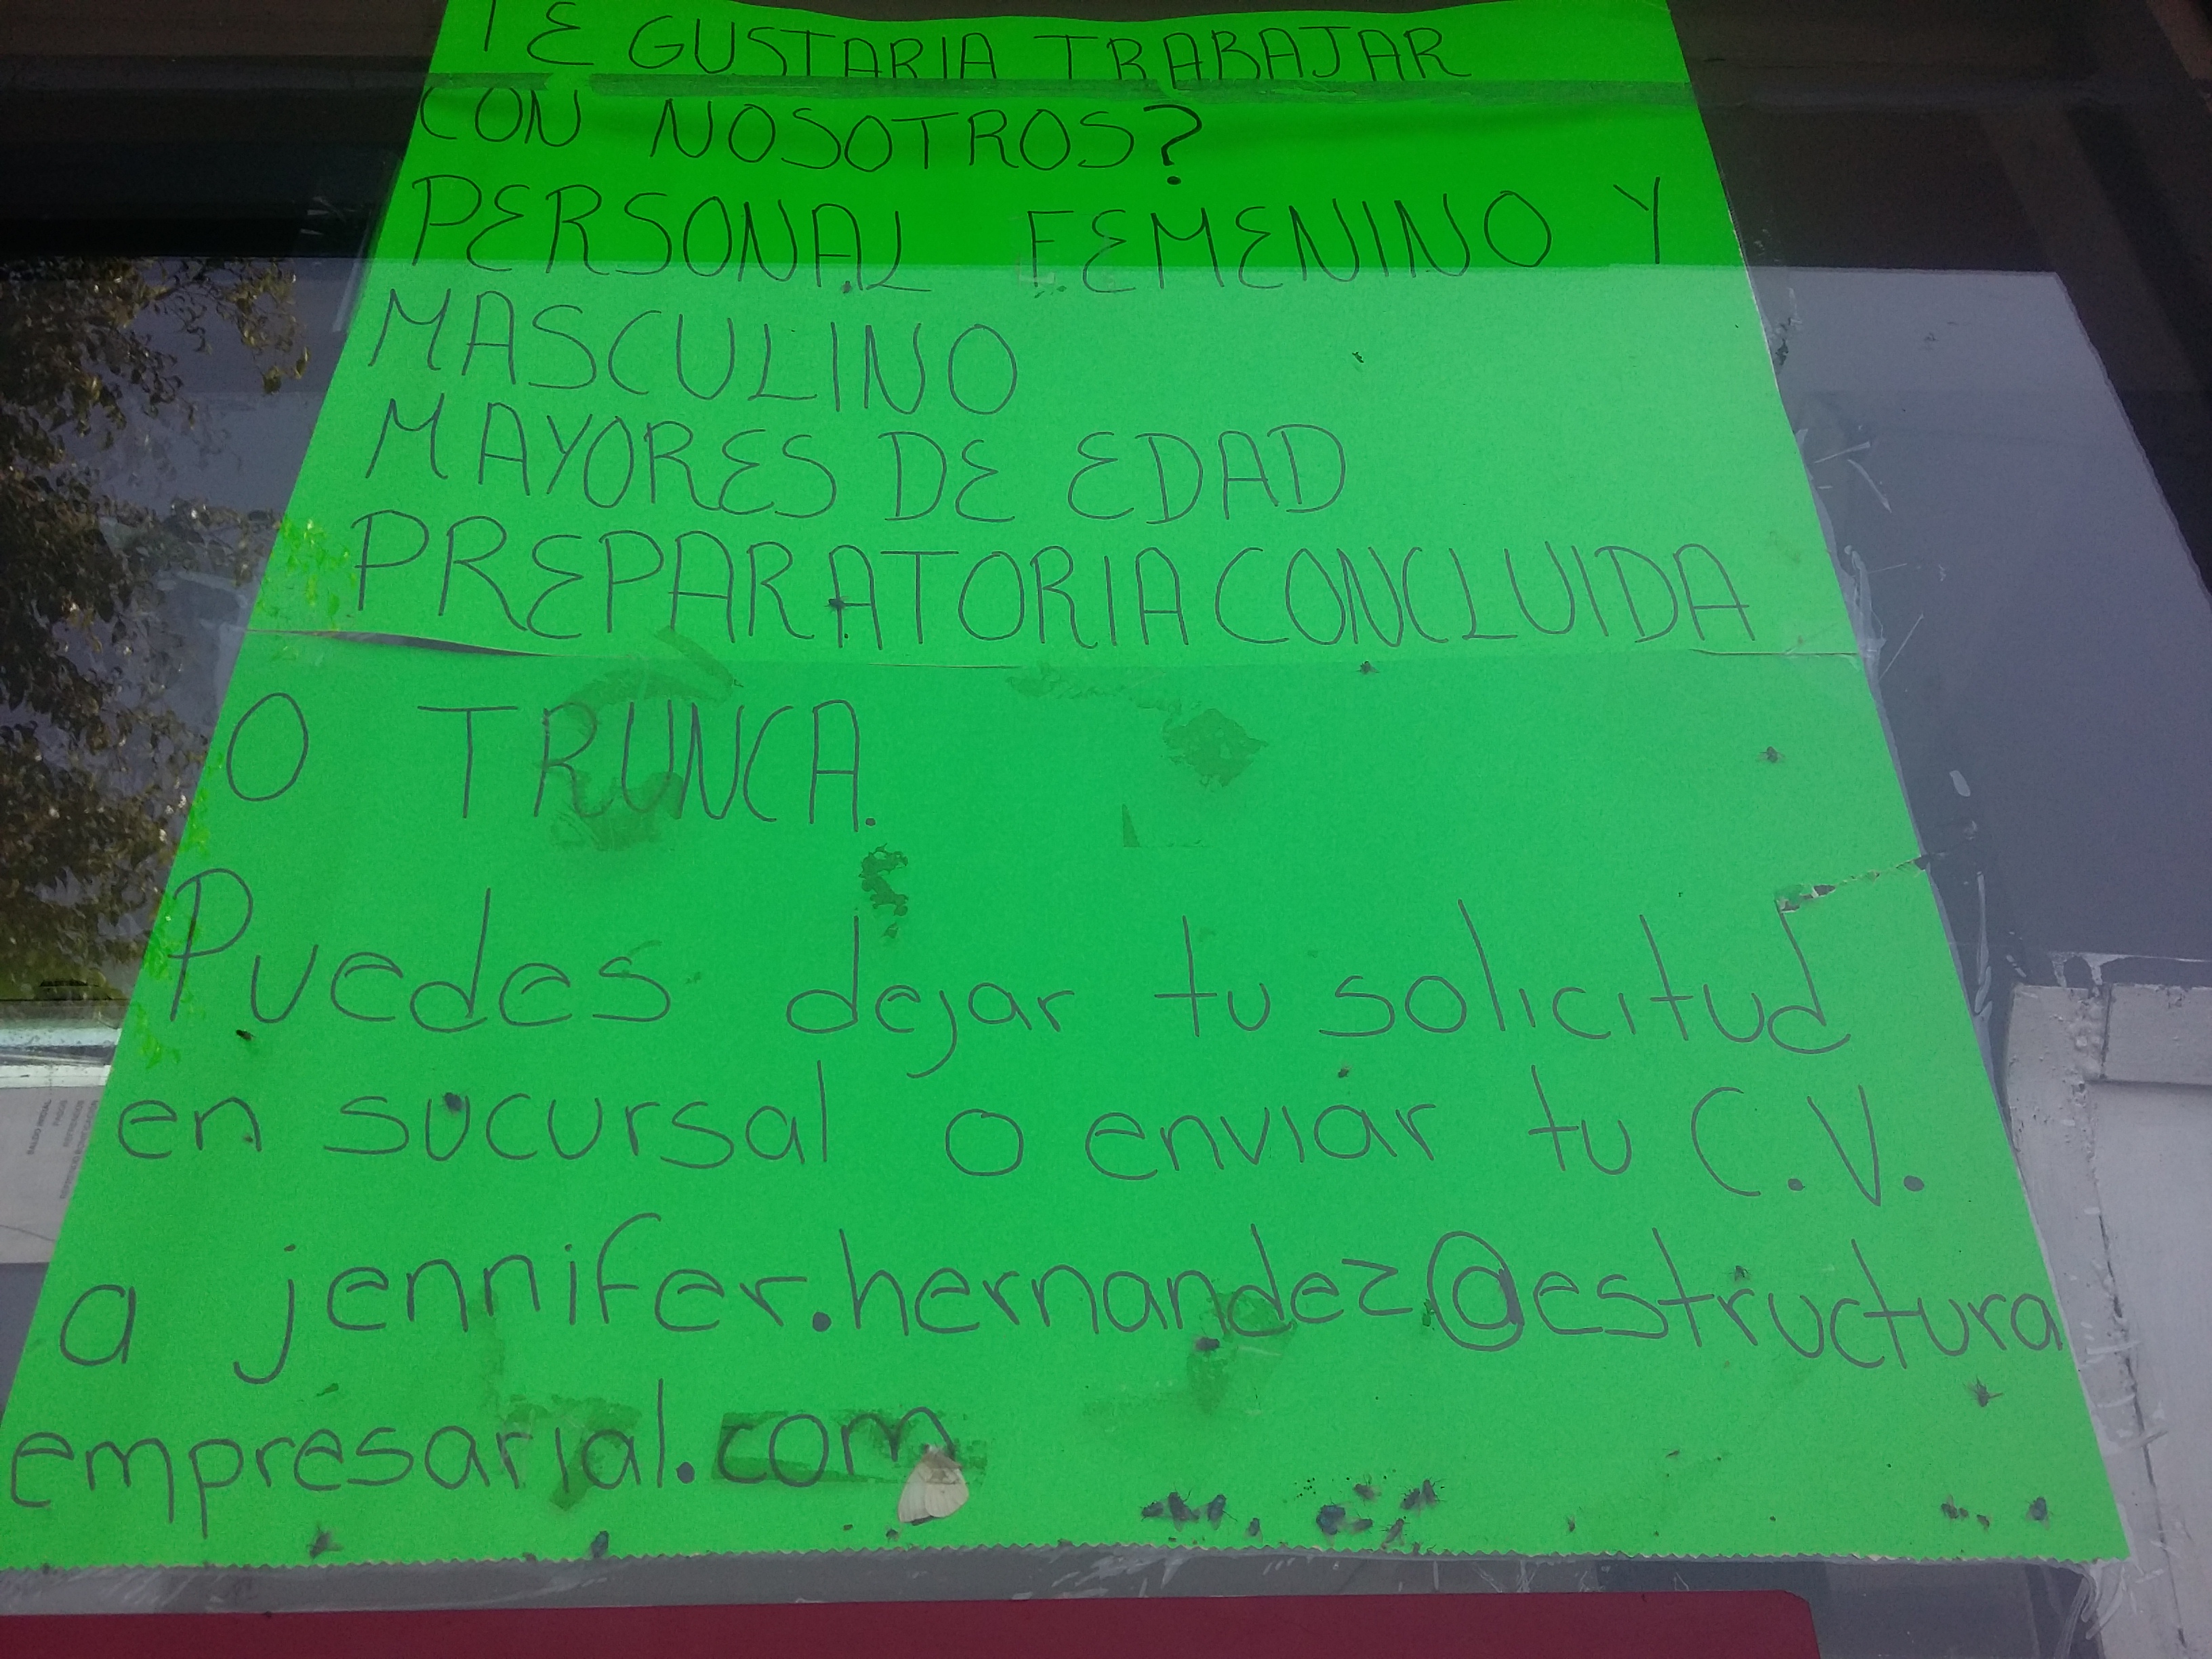 TE GUSTARIA TRABAJAR
CON NOSOTROS?
PERSONAL FEMENINO Y
MASCULINO
MAYORES DE EDAD
PREPARATORIA CONCLUIDA
O TRUNCA.
Puedes dejar tu solicitud
en sucursal o enviar tu C.V.
a jennifer.hernandez@estructura
empresarial.com